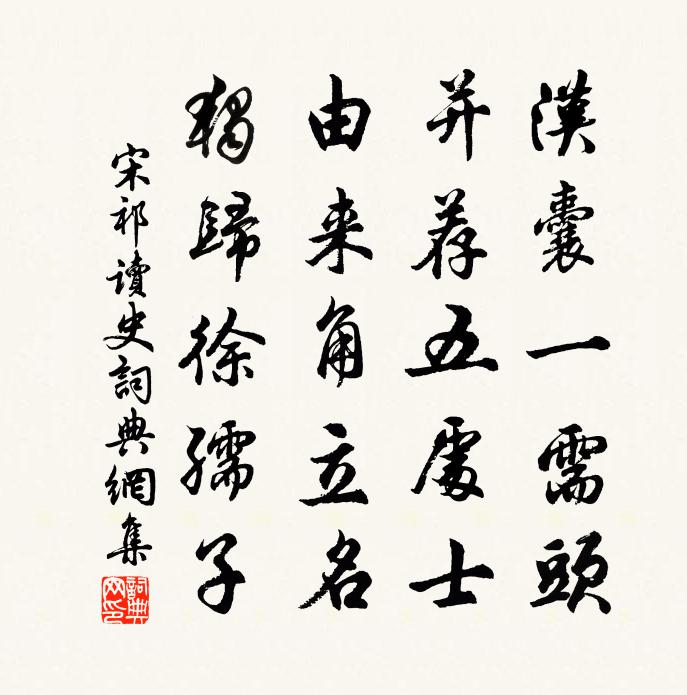 漢囊一霑頭
并荐五處士
由来角立名
獨歸徐孺子
宋祁讀史詞典網集
詞典網印